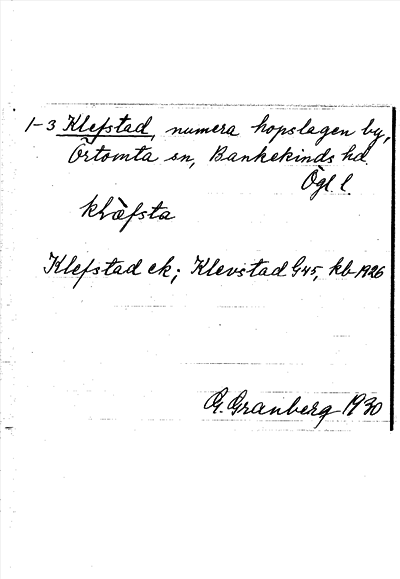 1-3 Klefstad, numera hopslagen by,
Örtomta sn, Bankekinds hd.
Ögl. l.
klæ̀fsta
Klefstad ek; Klevstad G45, kb 1926
G. Granberg 1930